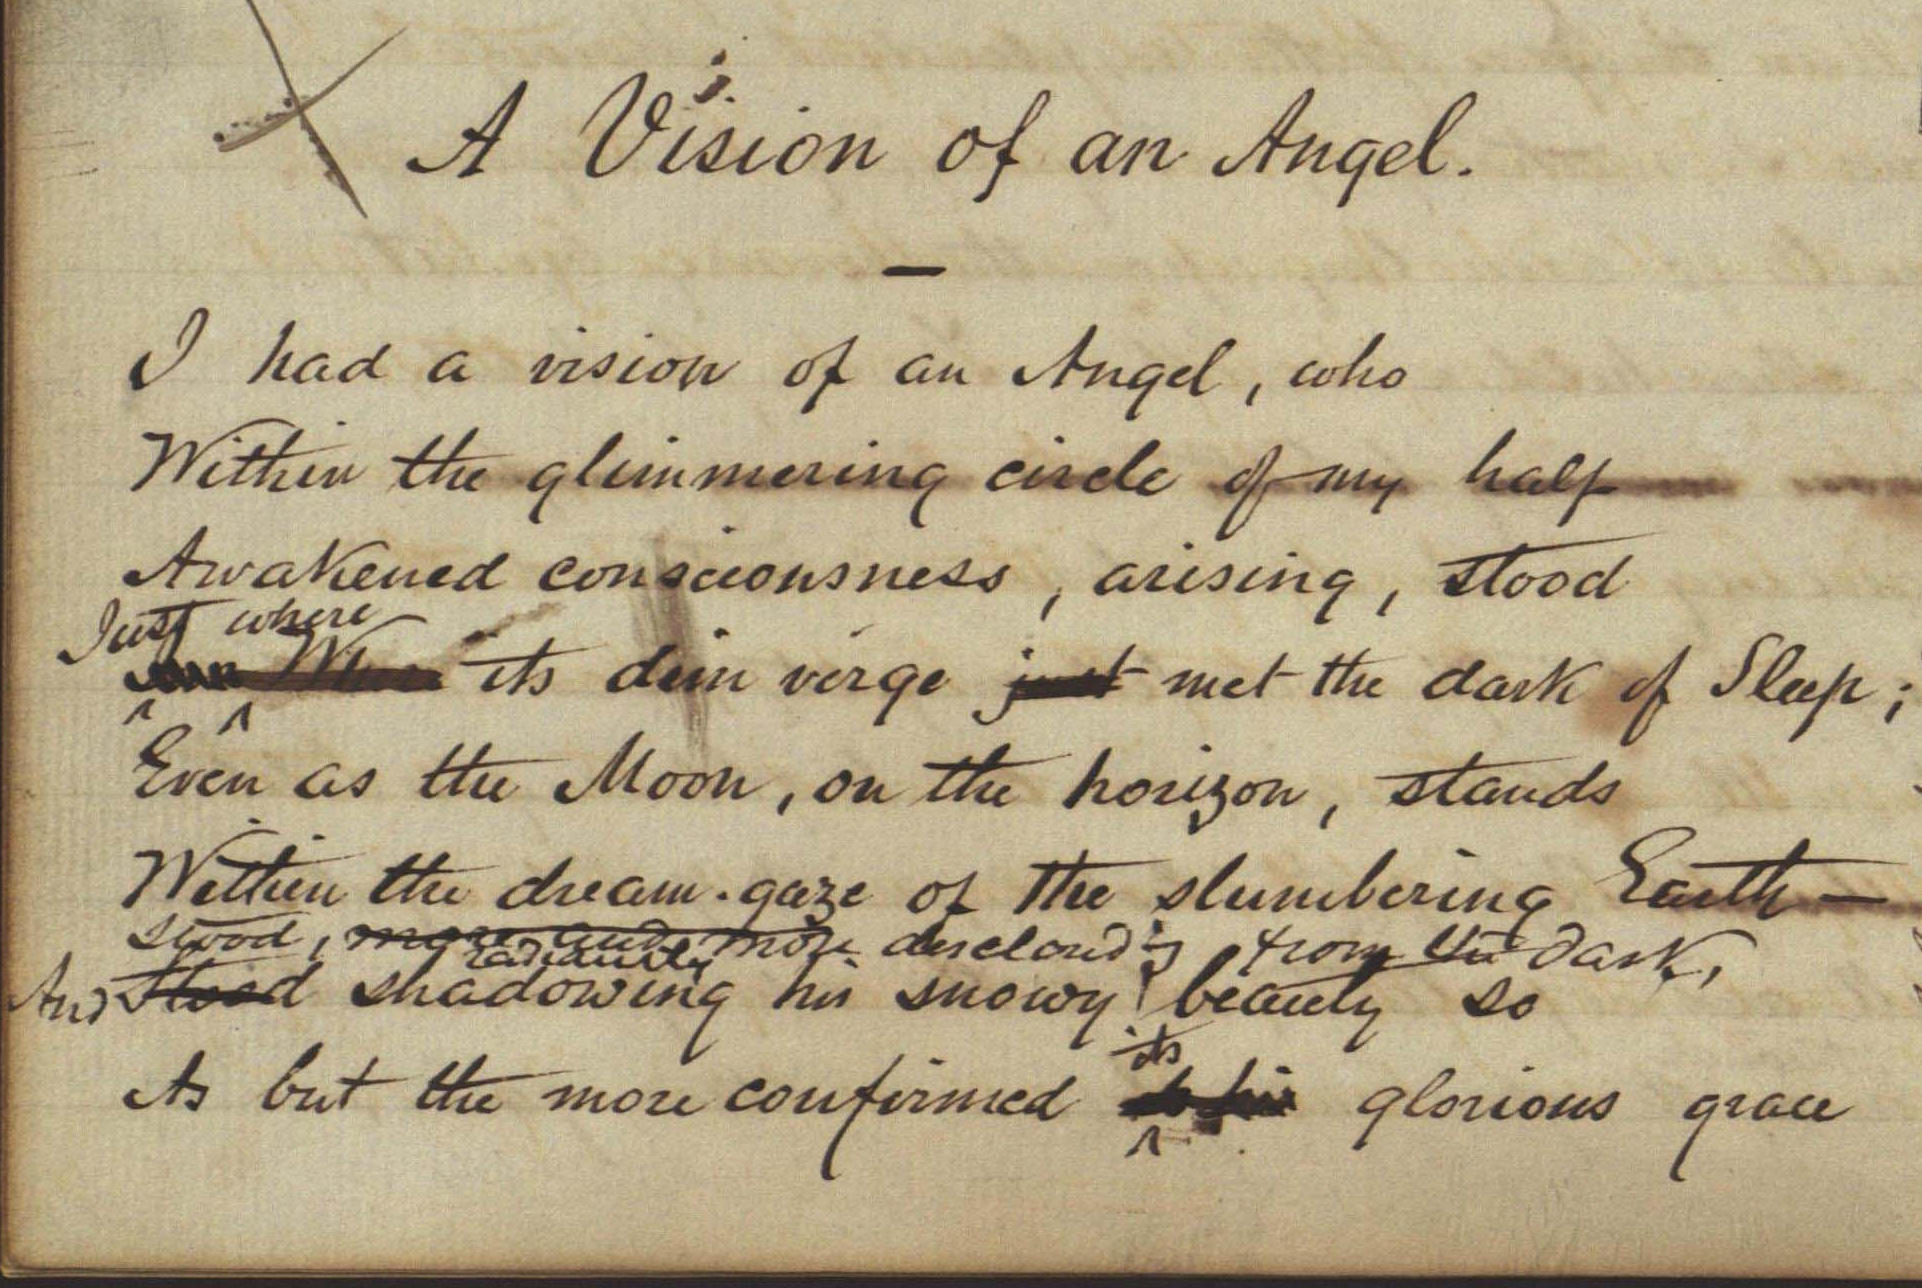 A Vision of an Angel.
I had a vision of an Angel, who
Within the glimmering circle of my half
Awakened consciousness, arising, stood
Just where
its dim verge just met the dark of Sleep;
Even as the Moon, on the horizon, stands
Within the dream-gaze of the slumbering Earth—
stood, more and more disclouding from the dark,
radiantly
And stood shadowing his snowy beauty so
As but the more confirmed
its
his glorious grace